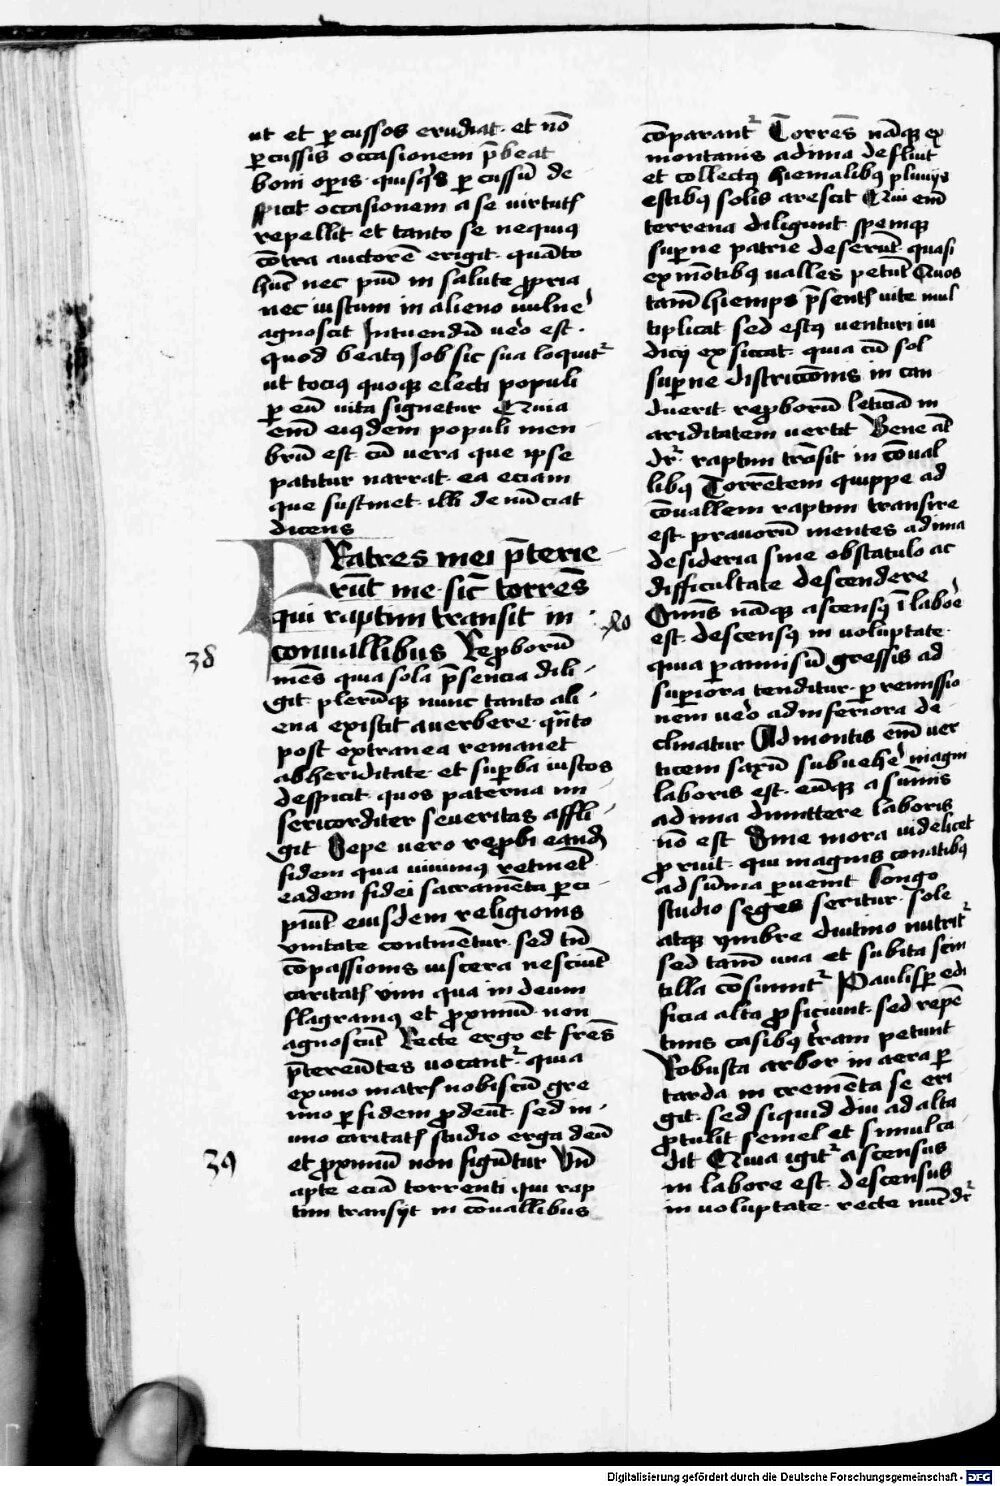 ut et ꝑcussos erudiat · et nō
ꝑcussis occasionem p̄beat
boni oꝑis · quisq̄s ꝑcussū de
spicit occasionem a se virtutꝭ
repellit et tanto se nequiꝰ
cōtra auctorē erigit · quāto
hūc nec piū in salute ꝓpria
nec iustum in alieno vulne᷒
agnoscit Intuendū ve᷒o est ·
quod beatꝰ Job sic sua loquit᷒
ut tociꝰ quoqꝫ electi populi
ꝑ eū vita signetur Quia
em̄ eiꝰdem populi men
brū est · cū vera que ipse
patitur narrat · ea eciam
que sustinet · illi denūciat
dicens
Fratres mei p̄terie
rūt me · sic̄ torrēs
qui raptim transit in
conuallibus Reꝓborū
38
mēs quia sola p̄sencia dili
git · plerūqꝫ nunc tanto ali
ena existit a verbere · qn̄to
post extranea remanet
ab heriditate · et suꝑba iustos
despicit · quos paterna mi
sericorditer seueritas affli
git Sepe vero reꝓbi eandē
fidem qua viuimꝰ retinēt
eadem fidei sacramēta ꝑci
piūt eiusdem religionis
vnitate continētur · sed tn̄
cōpassionis viscera nesciūt
caritatꝭ vim qua in deum
flagramꝰ et ꝓximū · non
agnoscūt Recte ergo et fr̄es
p̄tereūtes vocant᷒ · quia
ex vno matrꝭ nobiscū gre
mio ꝑ fidem ꝓdeūt · sed in
vno caritatꝭ studio erga deū
39
et ꝓximū non figūtur Vn̄
apte eciā torrenti qui rap
tim transijt in cōuallibus
cōparant᷒ Torrēs nāqꝫ ex
montanis ad ima defluit
et collectꝰ hiemalibꝰ pluuijs
estibꝰ solis arescit Qui em̄
terrena diligunt · spemqꝫ
suꝑne patrie deserūt · quasi
ex mōtibꝰ valles petūt Quos
tam̄ hiemps p̄sentꝭ vite mul
tiplicat sed estꝰ venturi iu
dicij exsiccat · quia cū sol
suꝑne districcōnis in can
duerit · reꝓborū leticiā in
ariditatem vertit Bene at̄
dr̄ · raptim trāsit in cōual
libꝰ Torrētem quippe ad
cōuallem raptim transire
est · prauorū mentes ad ima
desideria sine obstaculo ac
difficultate descendere
40
Om̄is nāqꝫ ascensꝰ ī labo᷒e
est · descensꝰ in voluptate ·
quia ꝑ annisū gressis ad
suꝑiora tenditur · ꝑ remissio
nem ve᷒o ad inferiora de
clinatur Ad montis em̄ ver
ticem saxū subuehe᷒ magni
laboris est · eūqꝫ a sūmis
ad ima dimittere laboris
nō est Sine mora videlicet
ꝓruit · qui magnis conatibꝰ
ad sūma ꝑuenit Longo
studio seges seritur · sole
atqꝫ ymbre diutino nutrit᷒
sed tam̄ una et subita scin
tilla cōsumit᷒ Paulisꝑ edi
ficia alta ꝓficiunt · sed repē
tinis casibꝰ t᷒ram petunt
Robusta arbor in aera ꝑ
tarda incremēta se eri
git · sed siquid diu ad alta
ꝓtulit · semel et simul ca
dit Quia igit᷒ ascensus
in labore est · descensus
in voluptate · recte nūc dr̄
Digitalisierung gefördert durch die Deutsche Forschungsgemeinschaft - DFG